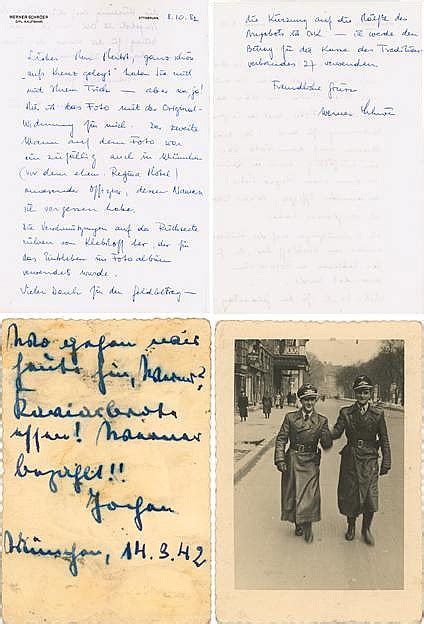 WERNER SCHRÖER
DIPL. KAUFMANN
OTTOBRUNN, 8.10.82
Lieber Herr
aufs Kreuz gelegt haben Sie mich
mit Ihrem Trick — aber na ja!
Hier ist das Foto mit der Original-
Widmung für mich. Der zweite
Mann auf dem Foto war
ein zufällig auch in München
(vor dem ehem. Regina Hotel)
anwesender Offizier, dessen Namen
ich vergessen habe.
Die Verschmutzungen auf der Rückseite
rühren von Klebstoff her, der für
das Einkleben im Fotoalbum
verwendet wurde.
Vielen Dank für den Geldbetrag —
die Kürzung auf die Hälfte des
Angebots ist OK — ich werde den
Betrag für die Kasse des Traditions-
verbandes 27 verwenden.
Freundliche Grüsse
Werner Schröer
Wo gehen wir
heute hin, Werner?
Kaviarbrote
essen! Werner
bezahlt!!
Jochen
München, 14.3.42